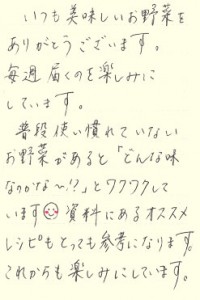 いつも美味しいお野菜を
ありがとうございます。
毎週届くのを楽しみに
しています。
普段使い慣れていない
お野菜があると「どんな味
なのかな〜!?」とワクワクして
います 資料にあるオススメ
レシピもとっても参考になります。
これからも楽しみにしています。